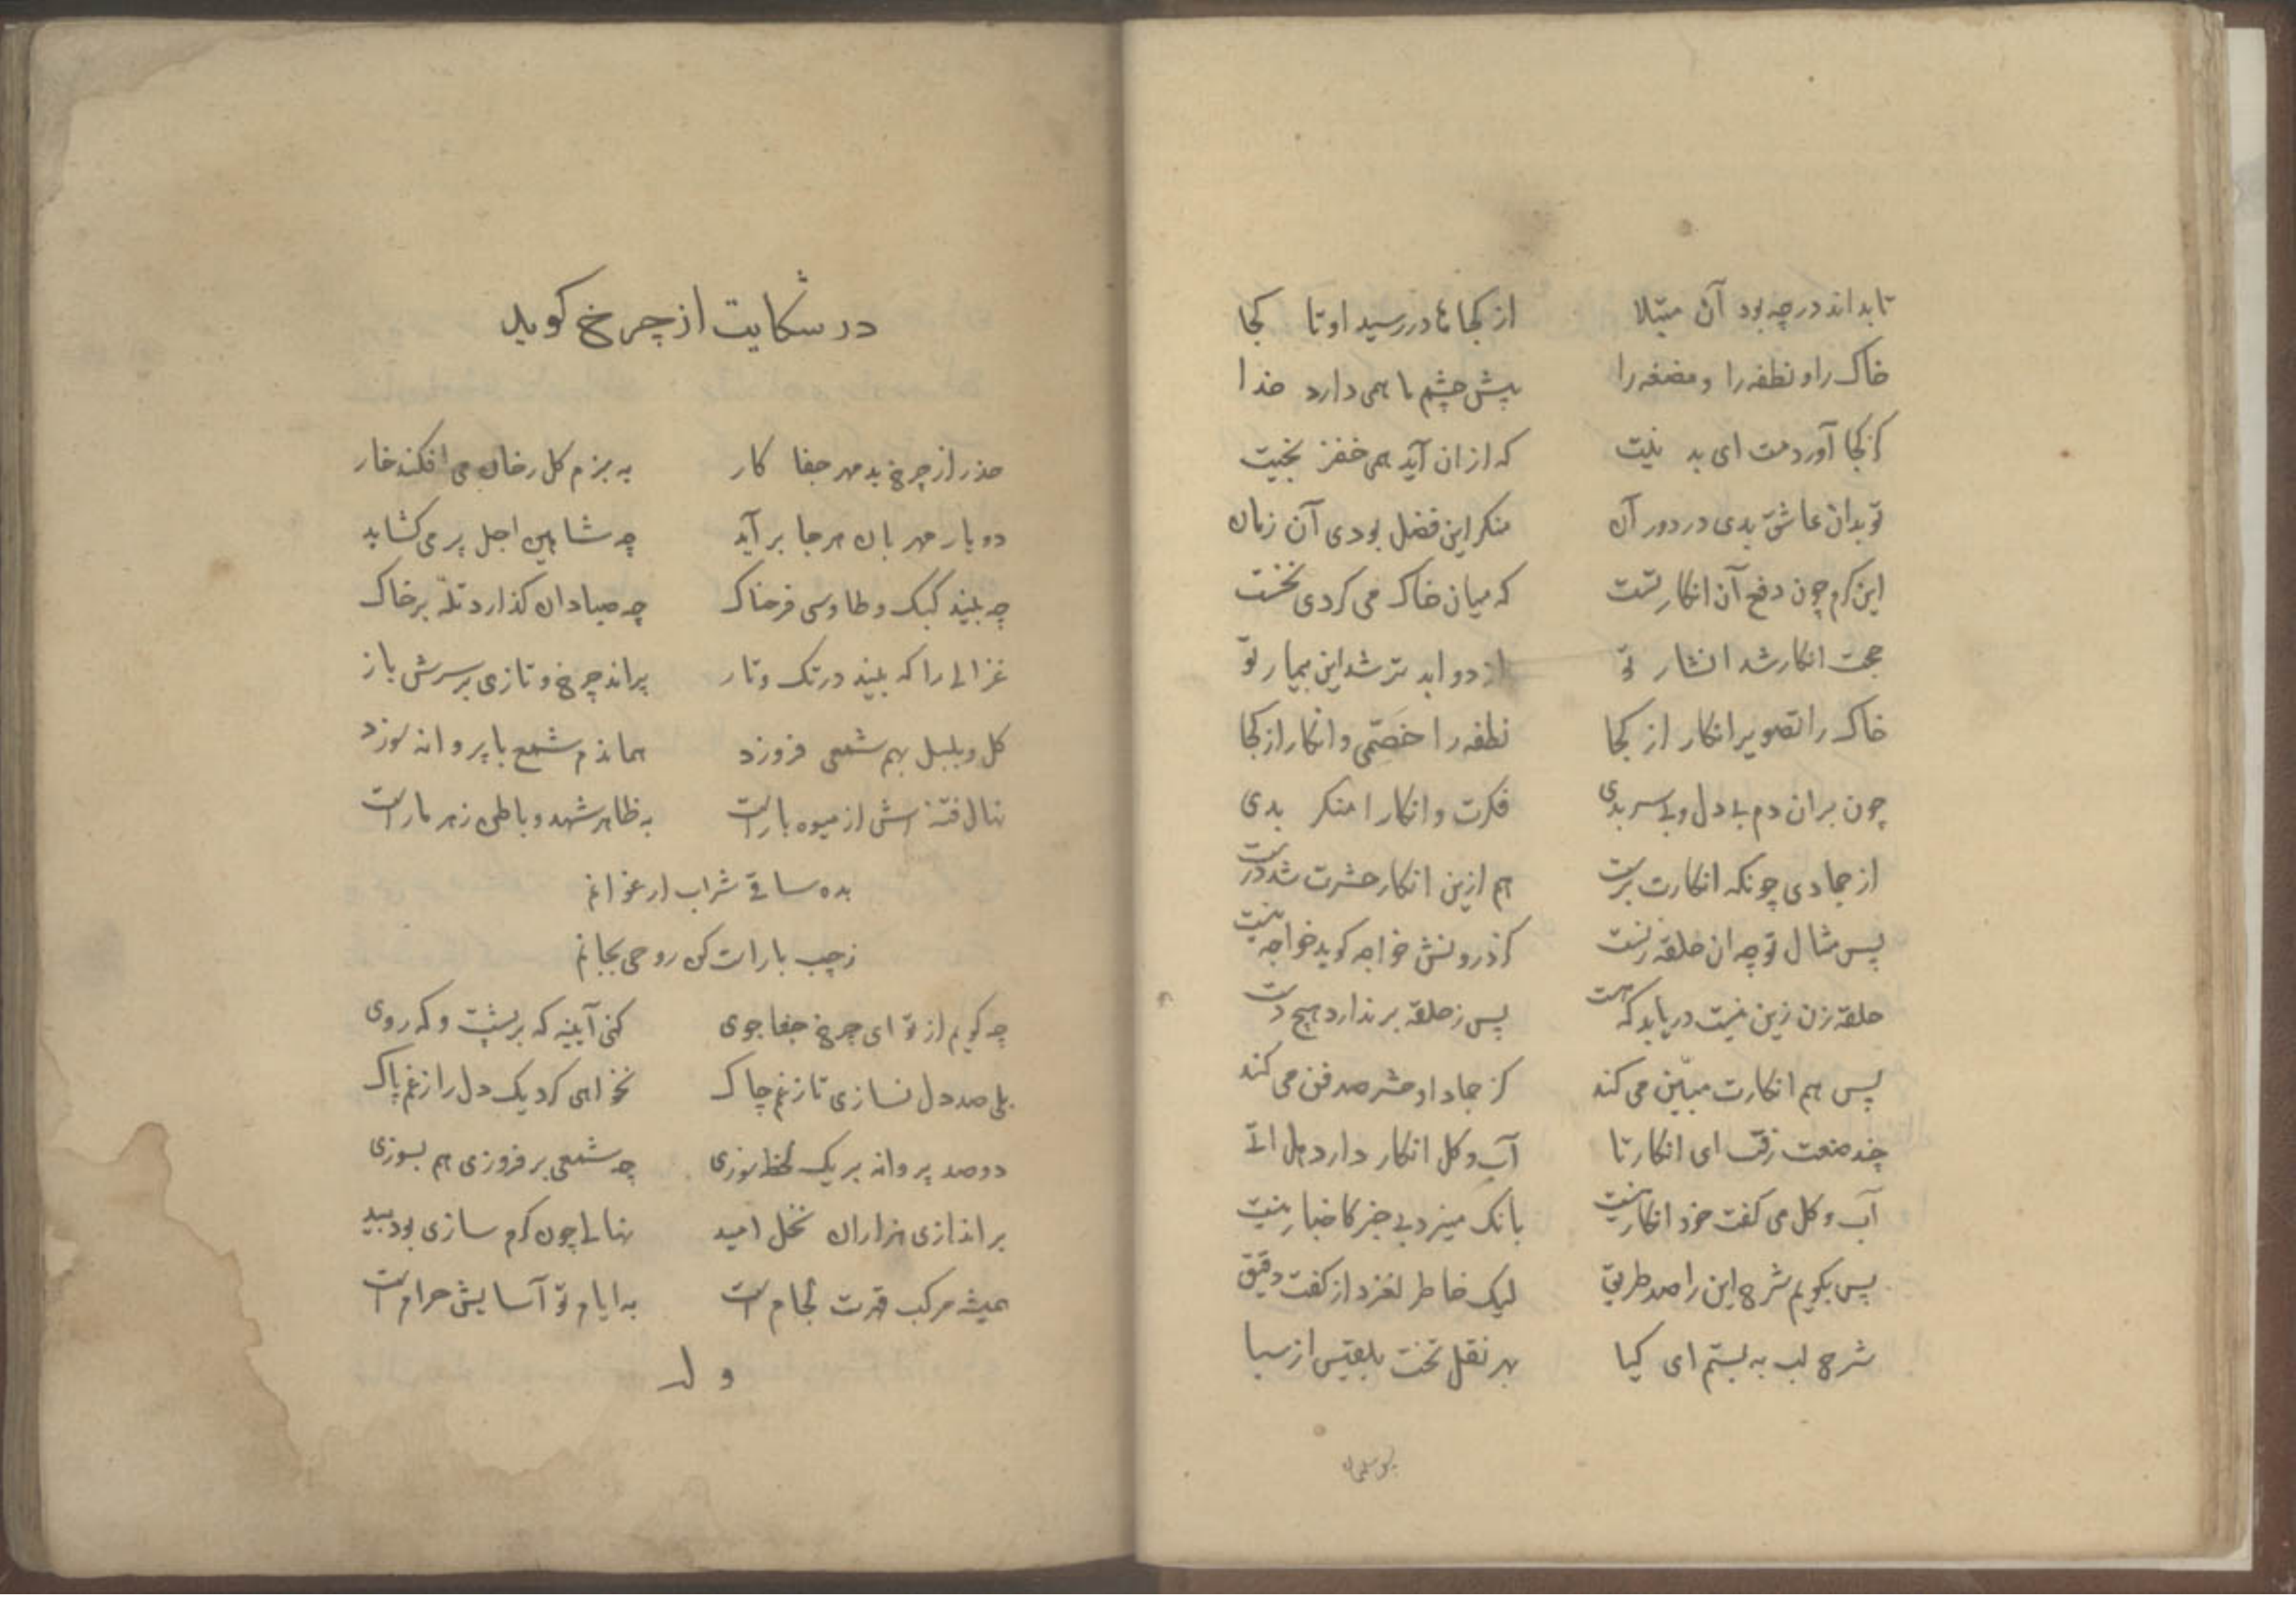 تا بداند در چه بود آن مبتلا از کجاها در رسید او تا کجا
خاک را و نطفه را و مضغه را پیش چشم ما همی دارد خدا
کز کجا آوردمت ای بد نیت که از آن آید همی خفریقیت
تو بدان عاشق بدی در دور آن منکر این فضل بودی آن زمان
این کرم چون دفع آن انکار تست که میان خاک می کردی نخست
حجت انکار شد انشار تو از دوا بدتر شد این بیمار تو
خاک را تصویر انکار از کجا نطفه را خصمی و انکار از کجا
چون بران دم بی دل و بی سر بدی فکرت و انکار را منکر بدی
از جمادی چونکه انکارت برست هم ازین انکار حشرت شد درست
پس مثال تو چه ان حلقه زنیست کز درونش خواجه کوید خواجه نیست
حلقه زن زین نیست دریابد که هست پس ز حلقه بر ندارد هیچ دست
پس هم انکارت مبیّن می کند کز جماد او حشر صد فن می کند
چند صنعت رفت ای انکار تا آب و کل انکار دارد هل اتی
آب و کل می کفت خود انکار نیست بانک میزد بی خبر کاخبار نیست
پس بکویم شرح این را صد طریق لیک خاطر لغزد از کفت دقیق
شرح لب به بستم ای کیا بهر نقل تخت بلقیس از سبا
در شکایت از چرخ کوید
حذر از چرخ بد مهر جفا کار به بزم کل رخان می افکند خار
دو یار مهربان هر جا بر آید چه شاهین اجل پر می کشاید
چه بیند کبک و طاوسی فرحناک چه صیادان کذارد تله بر خاک
غزالی را که بیند در تک و تاز پراند چرخ و تازی بر سرش باز
کل و بلبل بهم شمعی فروزد هماندم شمع با پروانه سوزد
نهال فتنه اش از میوه بار است به ظاهر شهد و باطن زهر مار است
بده ساقی شراب ارغوانم
ز چپ بار است کن روحی بجانم
چه کویم از تو ای چرخ جفا جوی کنی آیینه که بر پشت و که روی
بلی صد دل نسازی تا ز غم چاک نخواهی کرد یک دل را ز غم پاک
دو صد پروانه بر یک لحظه سوزی چه شمعی بر فروزی هم بسوزی
براندازی هزاران نخل امید نهالی چون کرم سازی بود بید
همیشه مرکب قدرت لجام است به ایام تو آسایش حرام است
و له